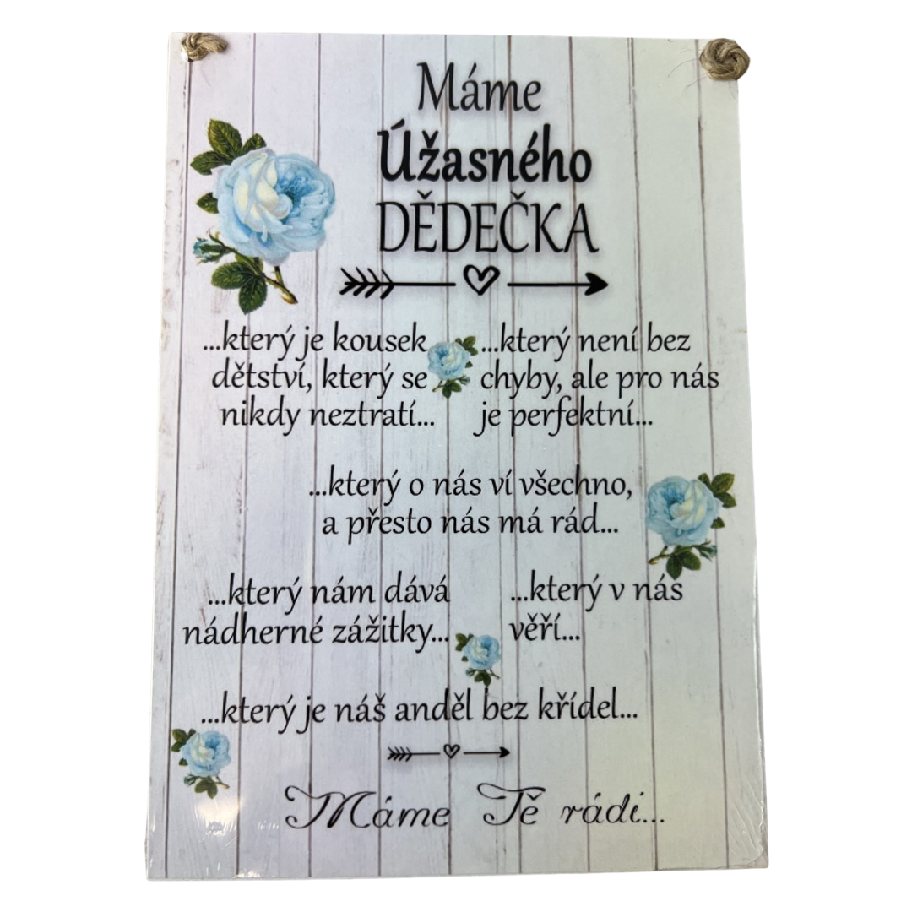 Máme
Úžasného
DĚDEČKA
...který je kousek
dětství, který se
nikdy neztratí...
...který není bez
chyby, ale pro nás
je perfektní...
...který o nás ví všechno,
a přesto nás má rád...
...který nám dává
nádherné zážitky...
...který v nás
věří...
...který je náš anděl bez křídel...
Máme Tě rádi...